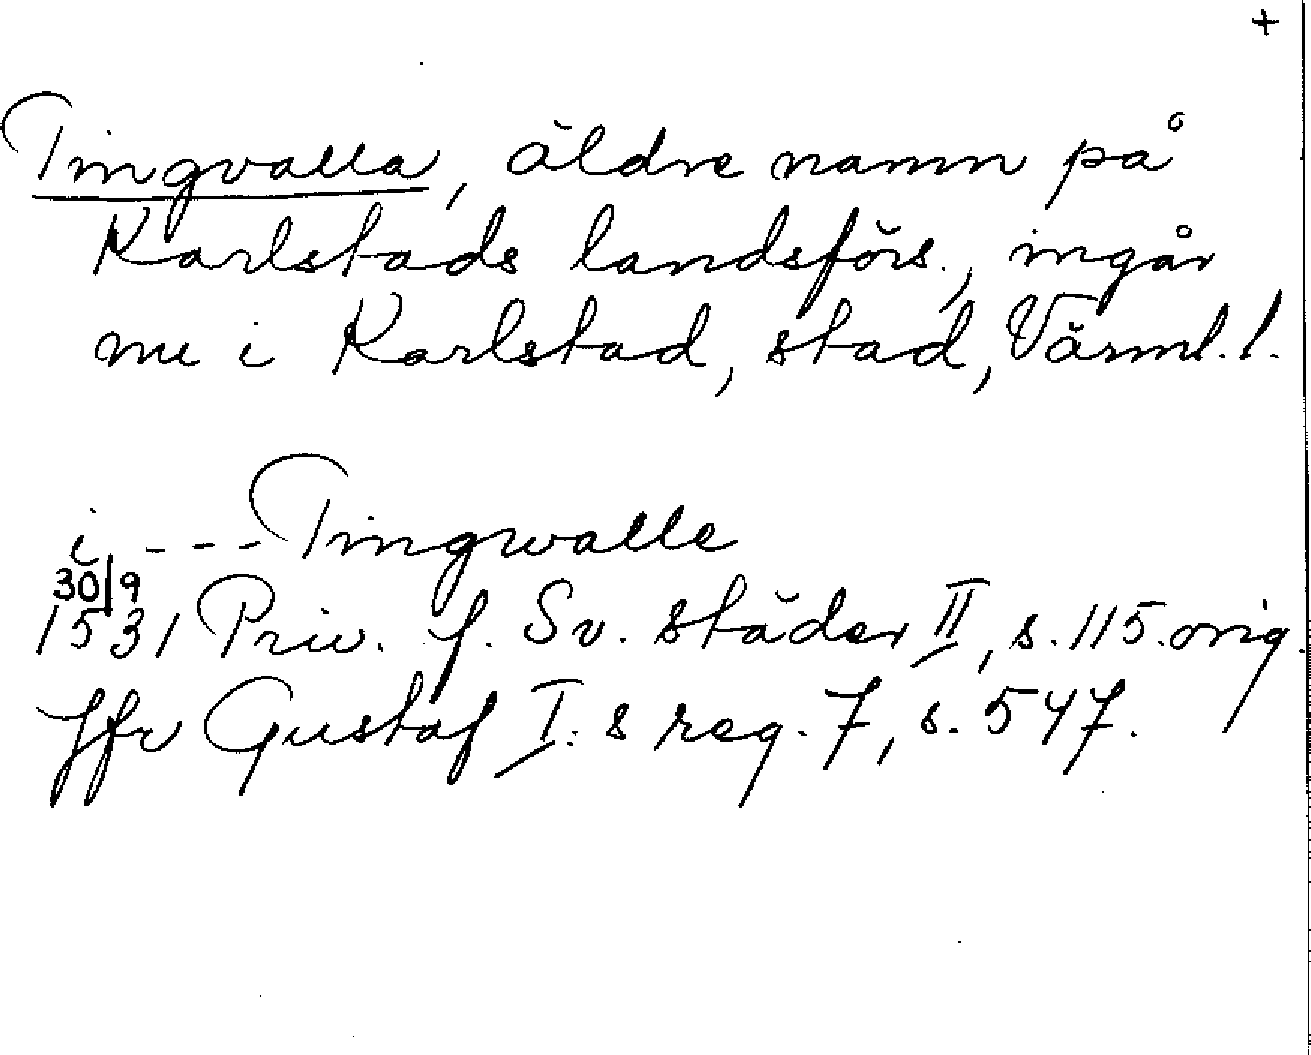 +
Tingvalla, äldre namn på
Karlstads landsförs., ingår
nu i Karlstad, stad, Värml. l.
i - - - Tingwalle
30/9
1531 Priv. f. Sv. städer II, s. 115. orig.
Jfr Gustaf I:s reg. 7, s. 547.